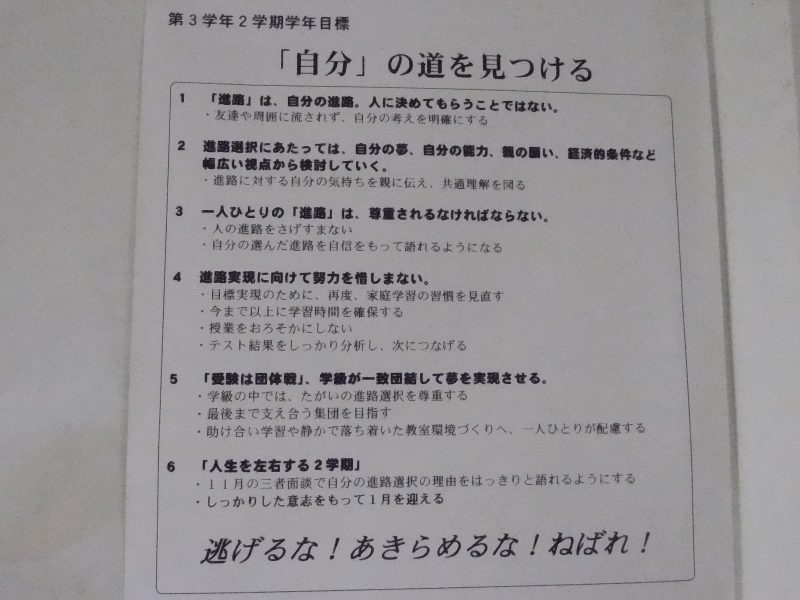 第3学年2学期学年目標
「自分」の道を見つける
1 「進路」は、自分の進路。人に決めてもらうことではない。
・友達や周囲に流されず、自分の考えを明確にする
2 進路選択にあたっては、自分の夢、自分の能力、親の願い、経済的条件など
幅広い視点から検討していく。
・進路に対する自分の気持ちを親に伝え、共通理解を図る
3 一人ひとりの「進路」は、尊重されるなければならない。
・人の進路をさげすまない
・自分の選んだ進路を自信をもって語れるようになる
4 進路実現に向けて努力を惜しまない。
・目標実現のために、再度、家庭学習の習慣を見直す
・今まで以上に学習時間を確保する
・授業をおろそかにしない
・テスト結果をしっかり分析し、次につなげる
5 「受験は団体戦」、学級が一致団結して夢を実現させる。
・学級の中では、たがいの進路選択を尊重する
・最後まで支え合う集団を目指す
・助け合い学習や静かで落ち着いた教室環境づくりへ、一人ひとりが配慮する
6 「人生を左右する2学期」
・11月の三者面談で自分の進路選択の理由をはっきりと語れるようにする
・しっかりした意志をもって1月を迎える
逃げるな！あきらめるな！ねばれ！